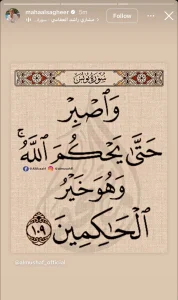 mahaalsagheer 5m
مشاري راشد العفاسي · سورة
Follow
سورة يونس
وَٱصْبِرْ
حَتَّىٰ يَحْكُمَ ٱللَّهُ ۚ
وَهُوَ خَيْرُ
ٱلْحَـٰكِمِينَ ١٠٩